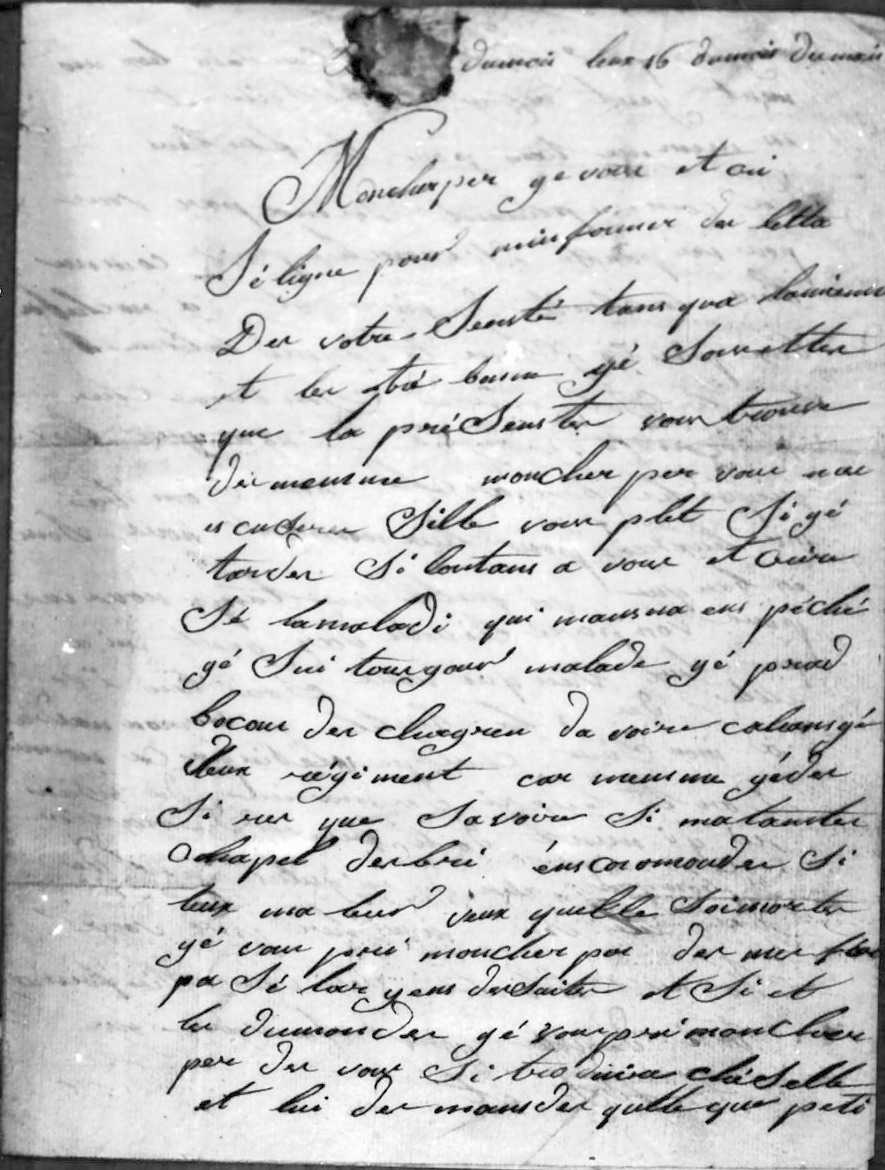 dumoii leux 16 dumois dumaii
Moncher per ge vous et cri
Sé ligne pour minformer der létta
Der votre Scanté tans qua lamienne
et ler bonne gé Souetter
que la préSenster vous trouve
der menme moncher per vous mes
escuserer Sille vous plet Si gé
tarder Si lontans a vous et crire
Sé lamaladi qui mansna ens péché
gé Sui tourgour malade gé prand
bocou der chagren da voire cohansgé
deux régiment car menme géder
Si rer que Savoire Si matanster
Chapel derbri énscoromonder Si
leux maleur veux quelle Soimorter
gé vous prii moncher par der mer
pa Sé largens derSaiter et Si et
ler dumonder gé vous prii moncher
per der vous Si traduire ché Selle
et lui der mansder quelque peti